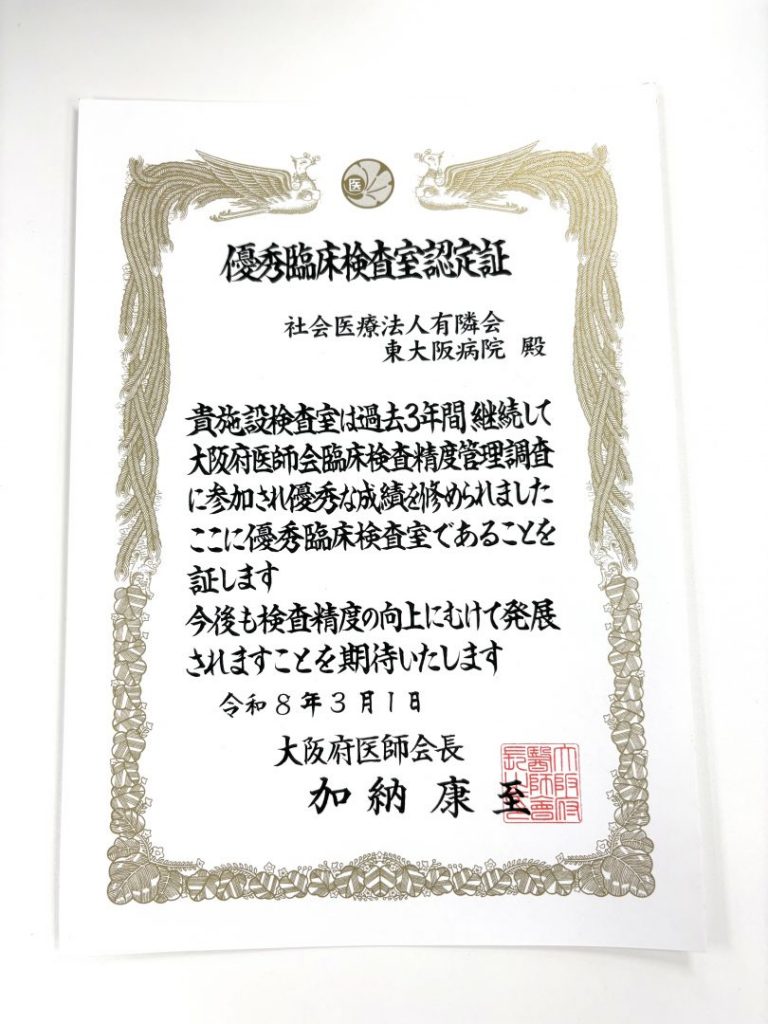 医
優秀臨床検査室認定証
社会医療法人有隣会
東大阪病院 殿
貴施設検査室は過去3年間継続して
大阪府医師会臨床検査精度管理調査
に参加され優秀な成績を修められました
ここに優秀臨床検査室であることを
証します
今後も検査精度の向上にむけて発展
されますことを期待いたします
令和8年3月1日
大阪府医師会長
加納康至
大阪府
醫師會
長